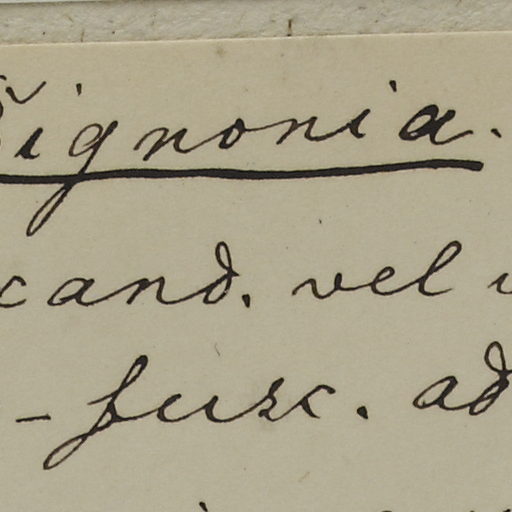 Bignonia.
scand. vel
- fusc. ad